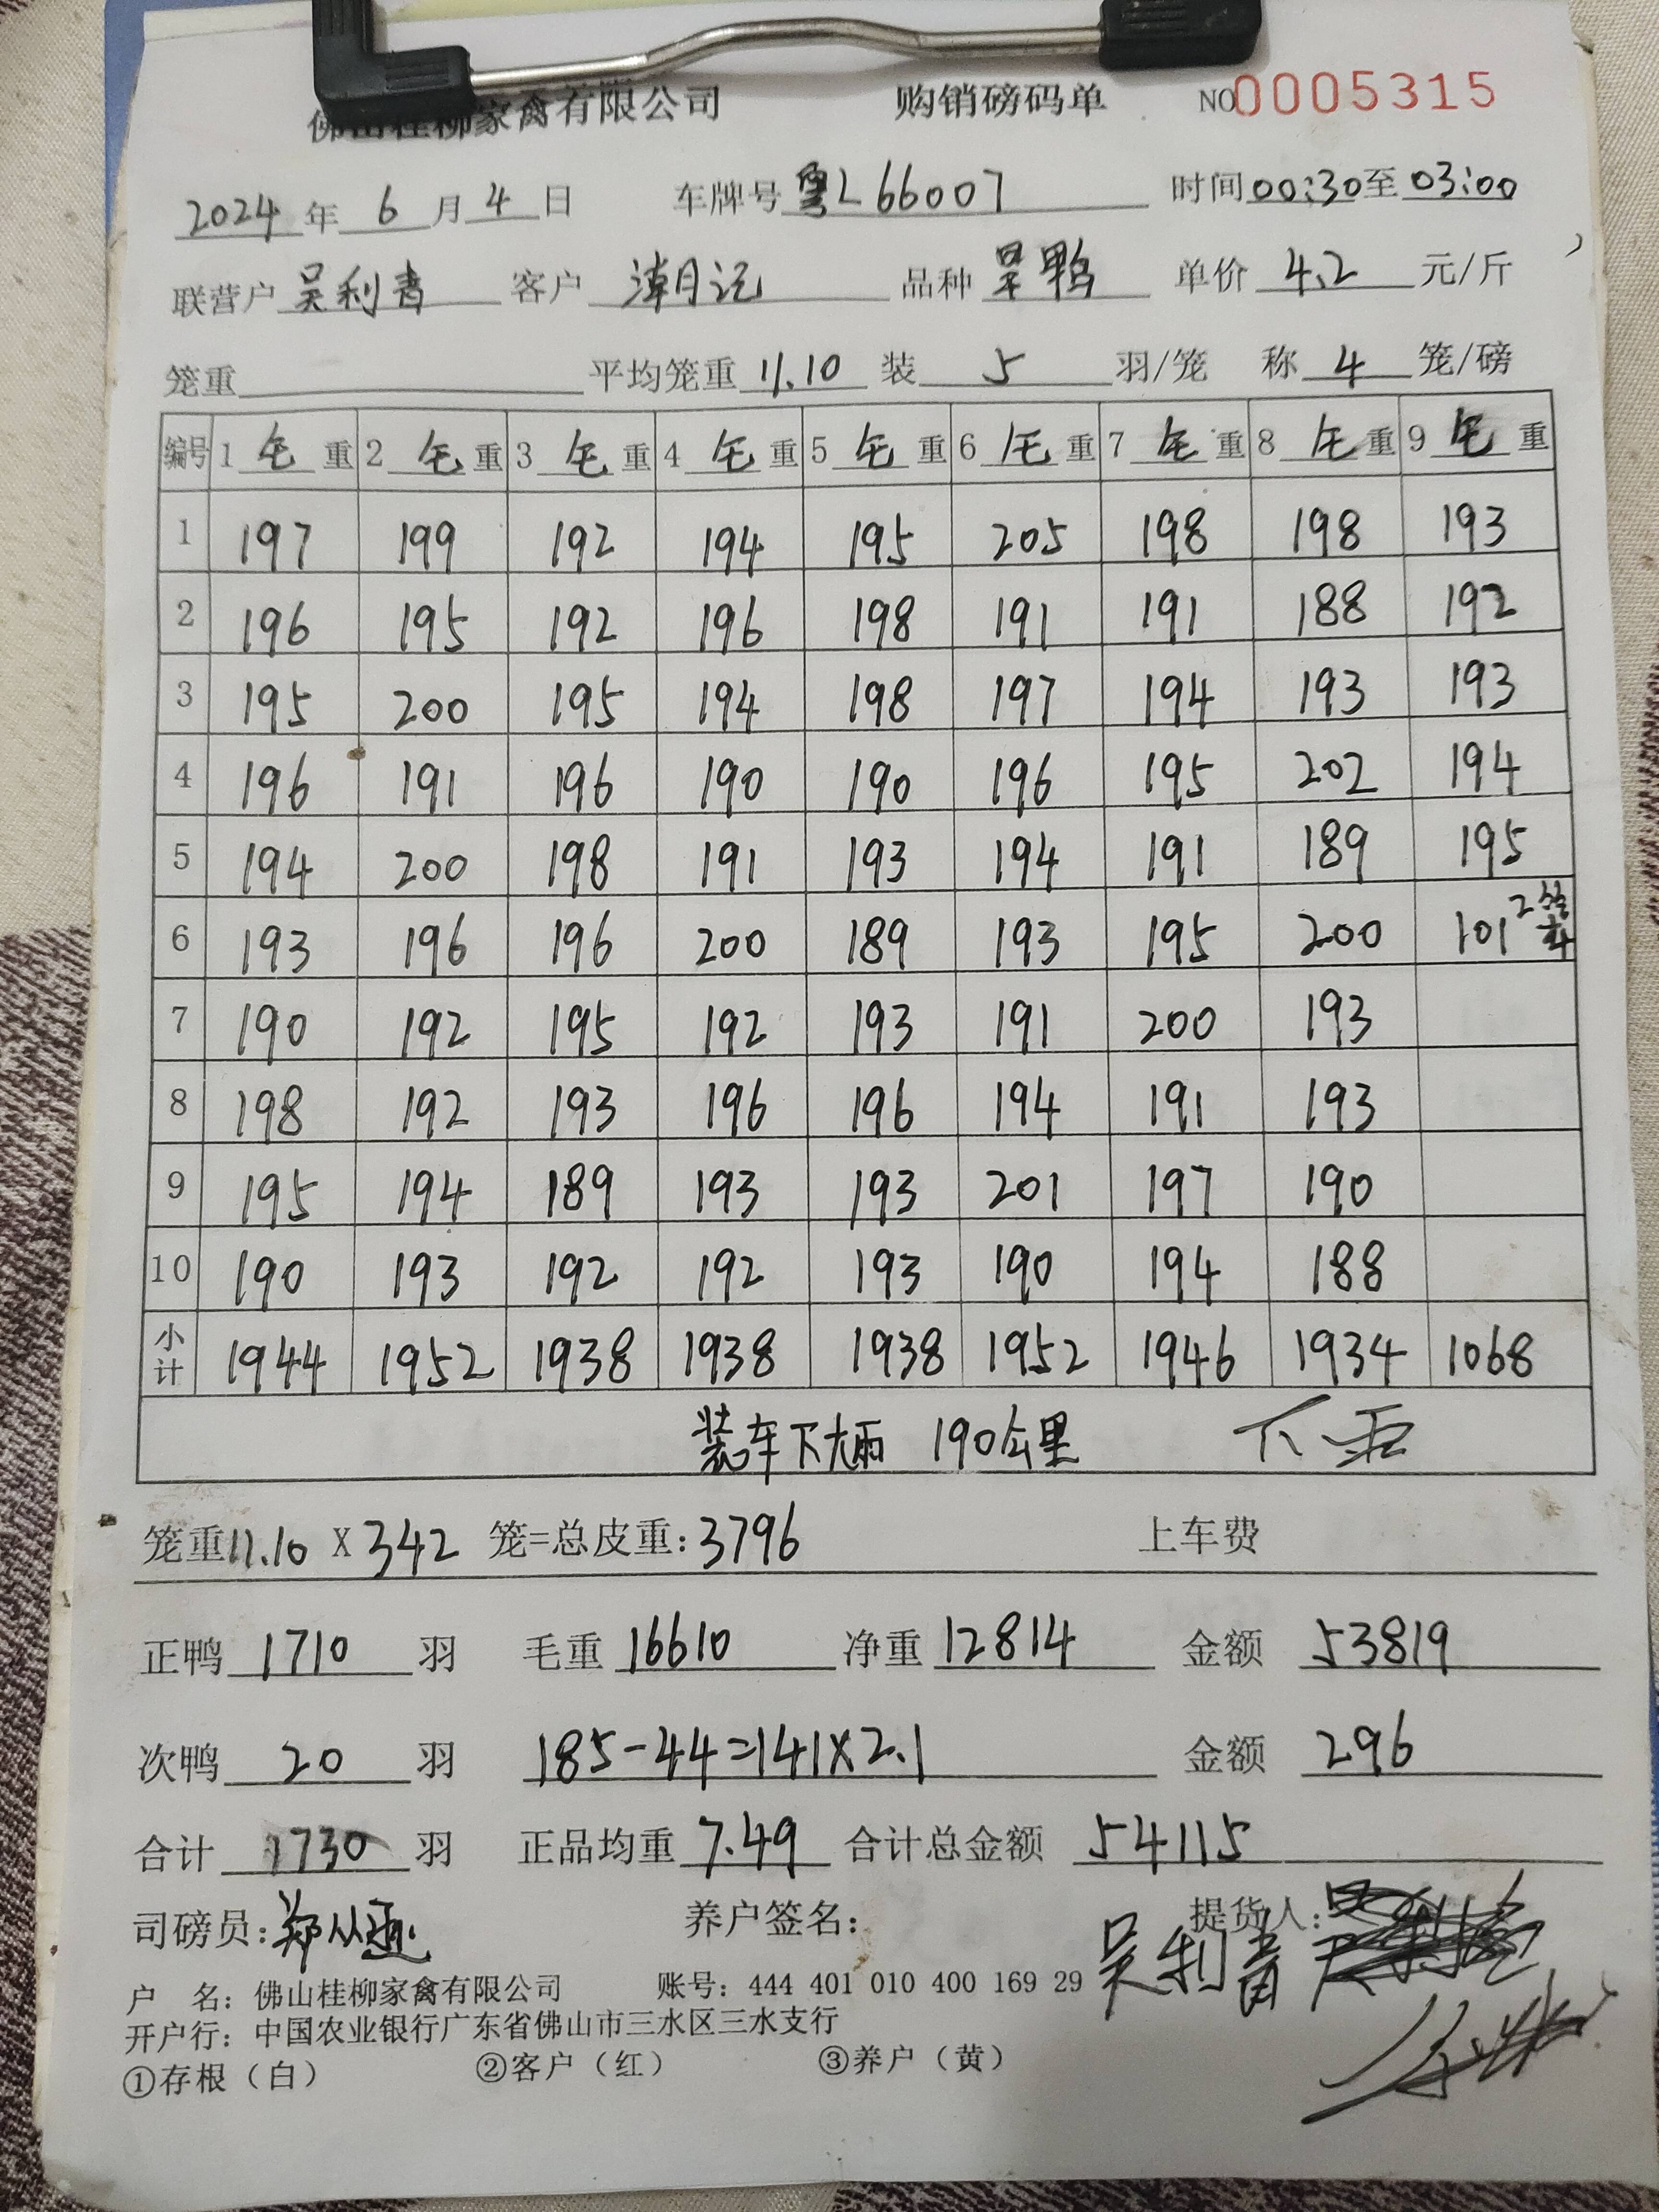 佛山桂柳家禽有限公司 购销磅码单 NO0005315
2024年6月4日 车牌号粤L66007 时间00:30至03:00
联营户吴利青 客户潮月记 品种旱鸭 单价4.2元/斤
笼重 平均笼重11.10 装5羽/笼 称4笼/磅
编号 1毛重 2毛重 3毛重 4毛重 5毛重 6毛重 7毛重 8毛重 9毛重
1 197 199 192 194 195 205 198 198 193
2 196 195 192 196 198 191 191 188 192
3 195 200 195 194 198 197 194 193 193
4 196 191 196 190 190 196 195 202 194
5 194 200 198 191 193 194 191 189 195
6 193 196 196 200 189 193 195 200 101 2笼
7 190 192 195 192 193 191 200 193
8 198 192 193 196 196 194 191 193
9 195 194 189 193 193 201 197 190
10 190 193 192 192 193 190 194 188
小计 1944 1952 1938 1938 1938 1952 1946 1934 1068
装车下大雨 190公里 下雨
笼重11.10X342笼=总皮重:3796 上车费
正鸭1710羽 毛重16610 净重12814 金额53819
次鸭20羽 185-44=141X2.1 金额296
合计1730羽 正品均重7.49 合计总金额54115
司磅员: 养户签名: 吴利青 提货人:
户 名: 佛山桂柳家禽有限公司 账号: 444 401 010 400 169 29
开户行: 中国农业银行广东省佛山市三水区三水支行
①存根（白） ②客户（红） ③养户（黄）